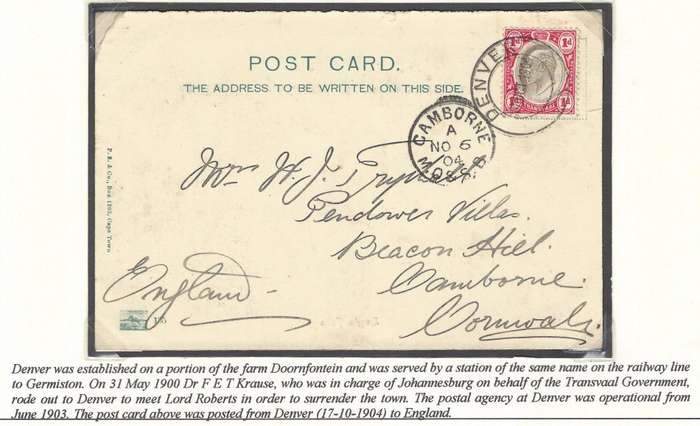 POST CARD.
THE ADDRESS TO BE WRITTEN ON THIS SIDE.
1d 1d
DENVER
TRANSVAAL
1d 1d
CAMBORNE
A
NO 6
04
P. R. & Co., Box 1253, Cape Town
Mrs W. J.
Pendower Villas.
Beacon Hill.
Camborne.
Cornwall.
England
Denver was established on a portion of the farm Doornfontein and was served by a station of the same name on the railway line
to Germiston. On 31 May 1900 Dr F E T Krause, who was in charge of Johannesburg on behalf of the Transvaal Government,
rode out to Denver to meet Lord Roberts in order to surrender the town. The postal agency at Denver was operational from
June 1903. The post card above was posted from Denver (17-10-1904) to England.